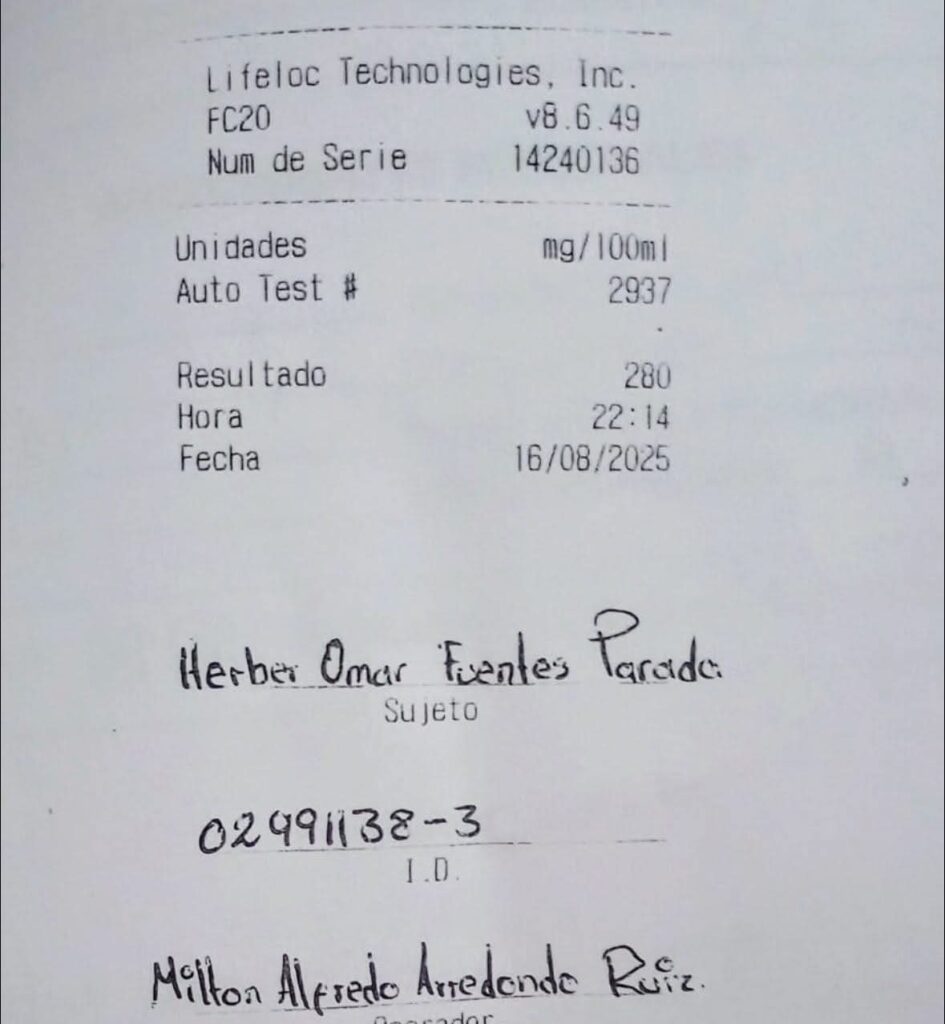 Lifeloc Technologies, Inc.
FC20 v8.6.49
Num de Serie 14240136
Unidades mg/100ml
Auto Test # 2937
Resultado 280
Hora 22:14
Fecha 16/08/2025
Herber Omar Fuentes Parada
Sujeto
02991138-3
I.D.
Milton Alfredo Arredondo Ruiz.
Operador